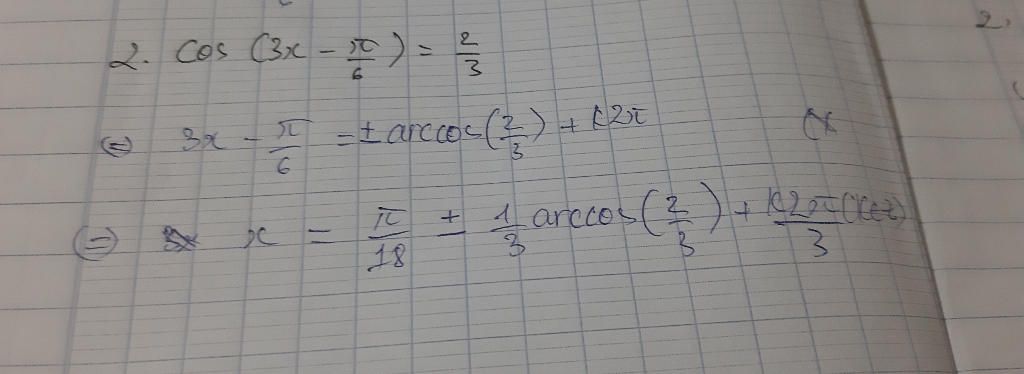 2. cos (3x - π/6) = 2/3
⇔ 3x - π/6 = ± arccos(2/3) + k2π
⇔ x = π/18 ± 1/3 arccos(2/3) + k2π/3 (k∈Z)
2.